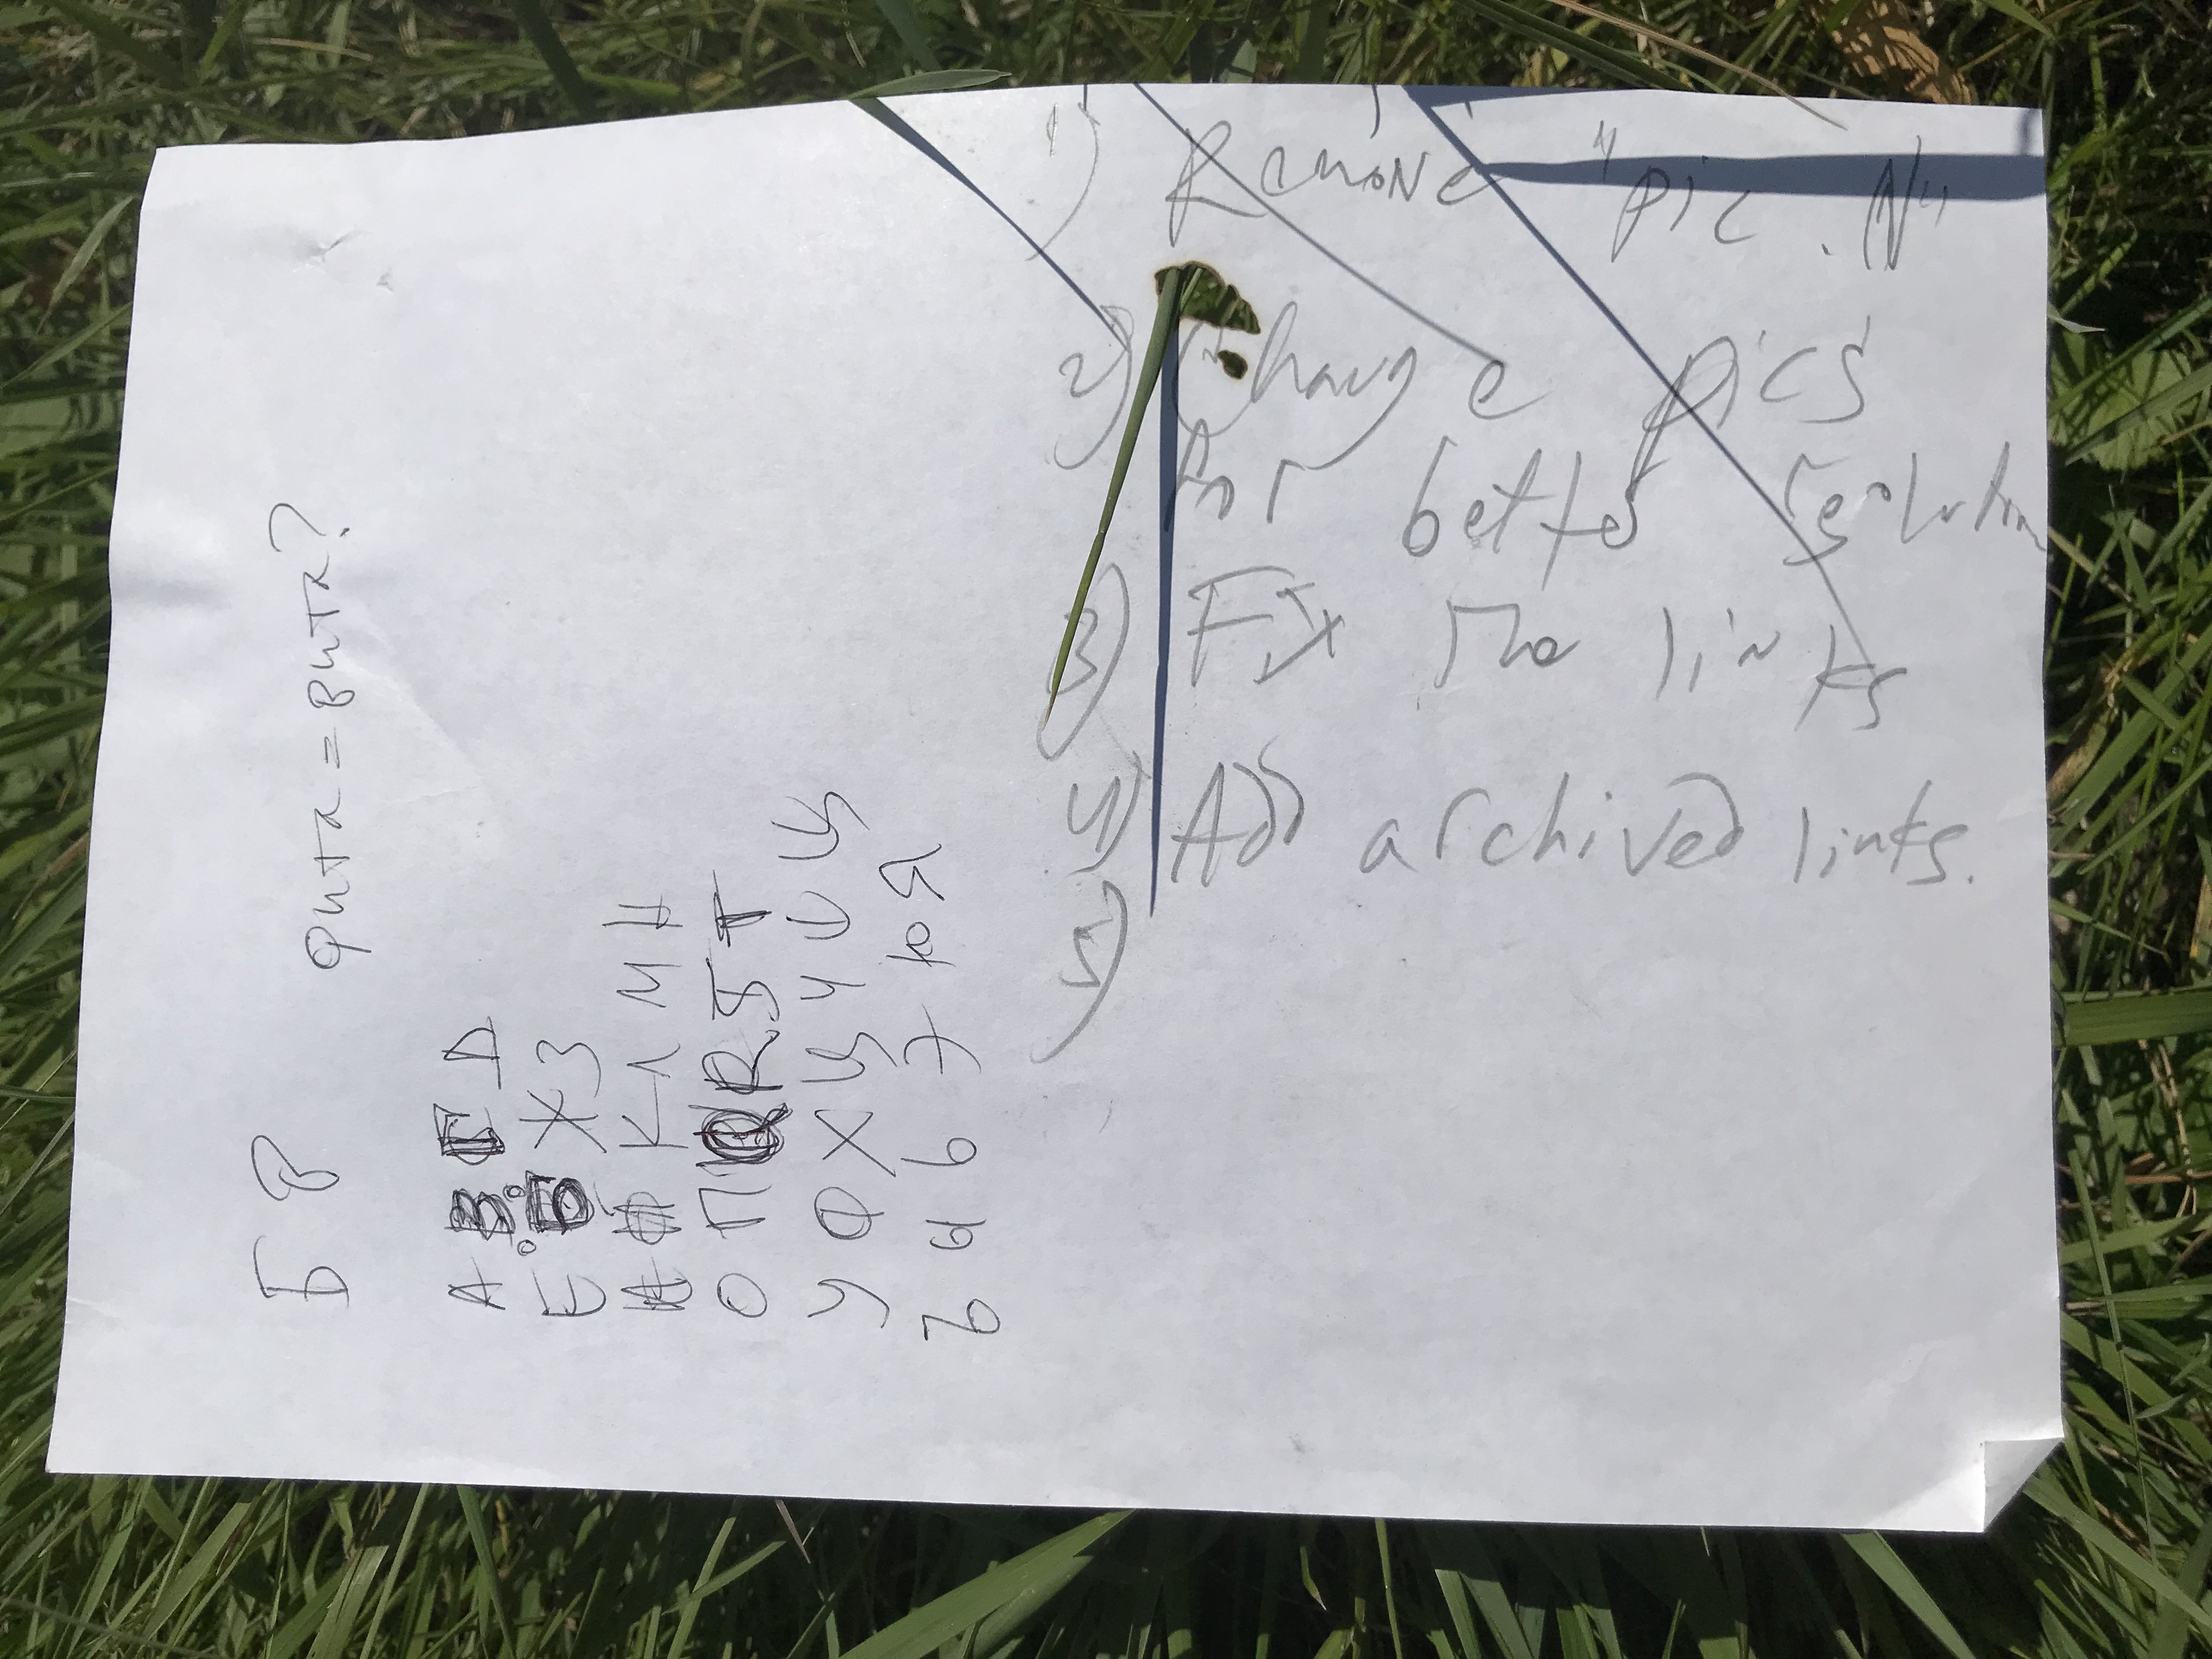 Б В
фита = вита?
А В Г D
Е Б Ж З
К Л М Н
О П Q R Б Т
У Ф Х Ц Ч Ш Щ
Ъ Ы Ь Э Ю Я
1) Remove "pic. Nu"
2) Change pics
for better
3) Fix links
4) Add archived links.
5)